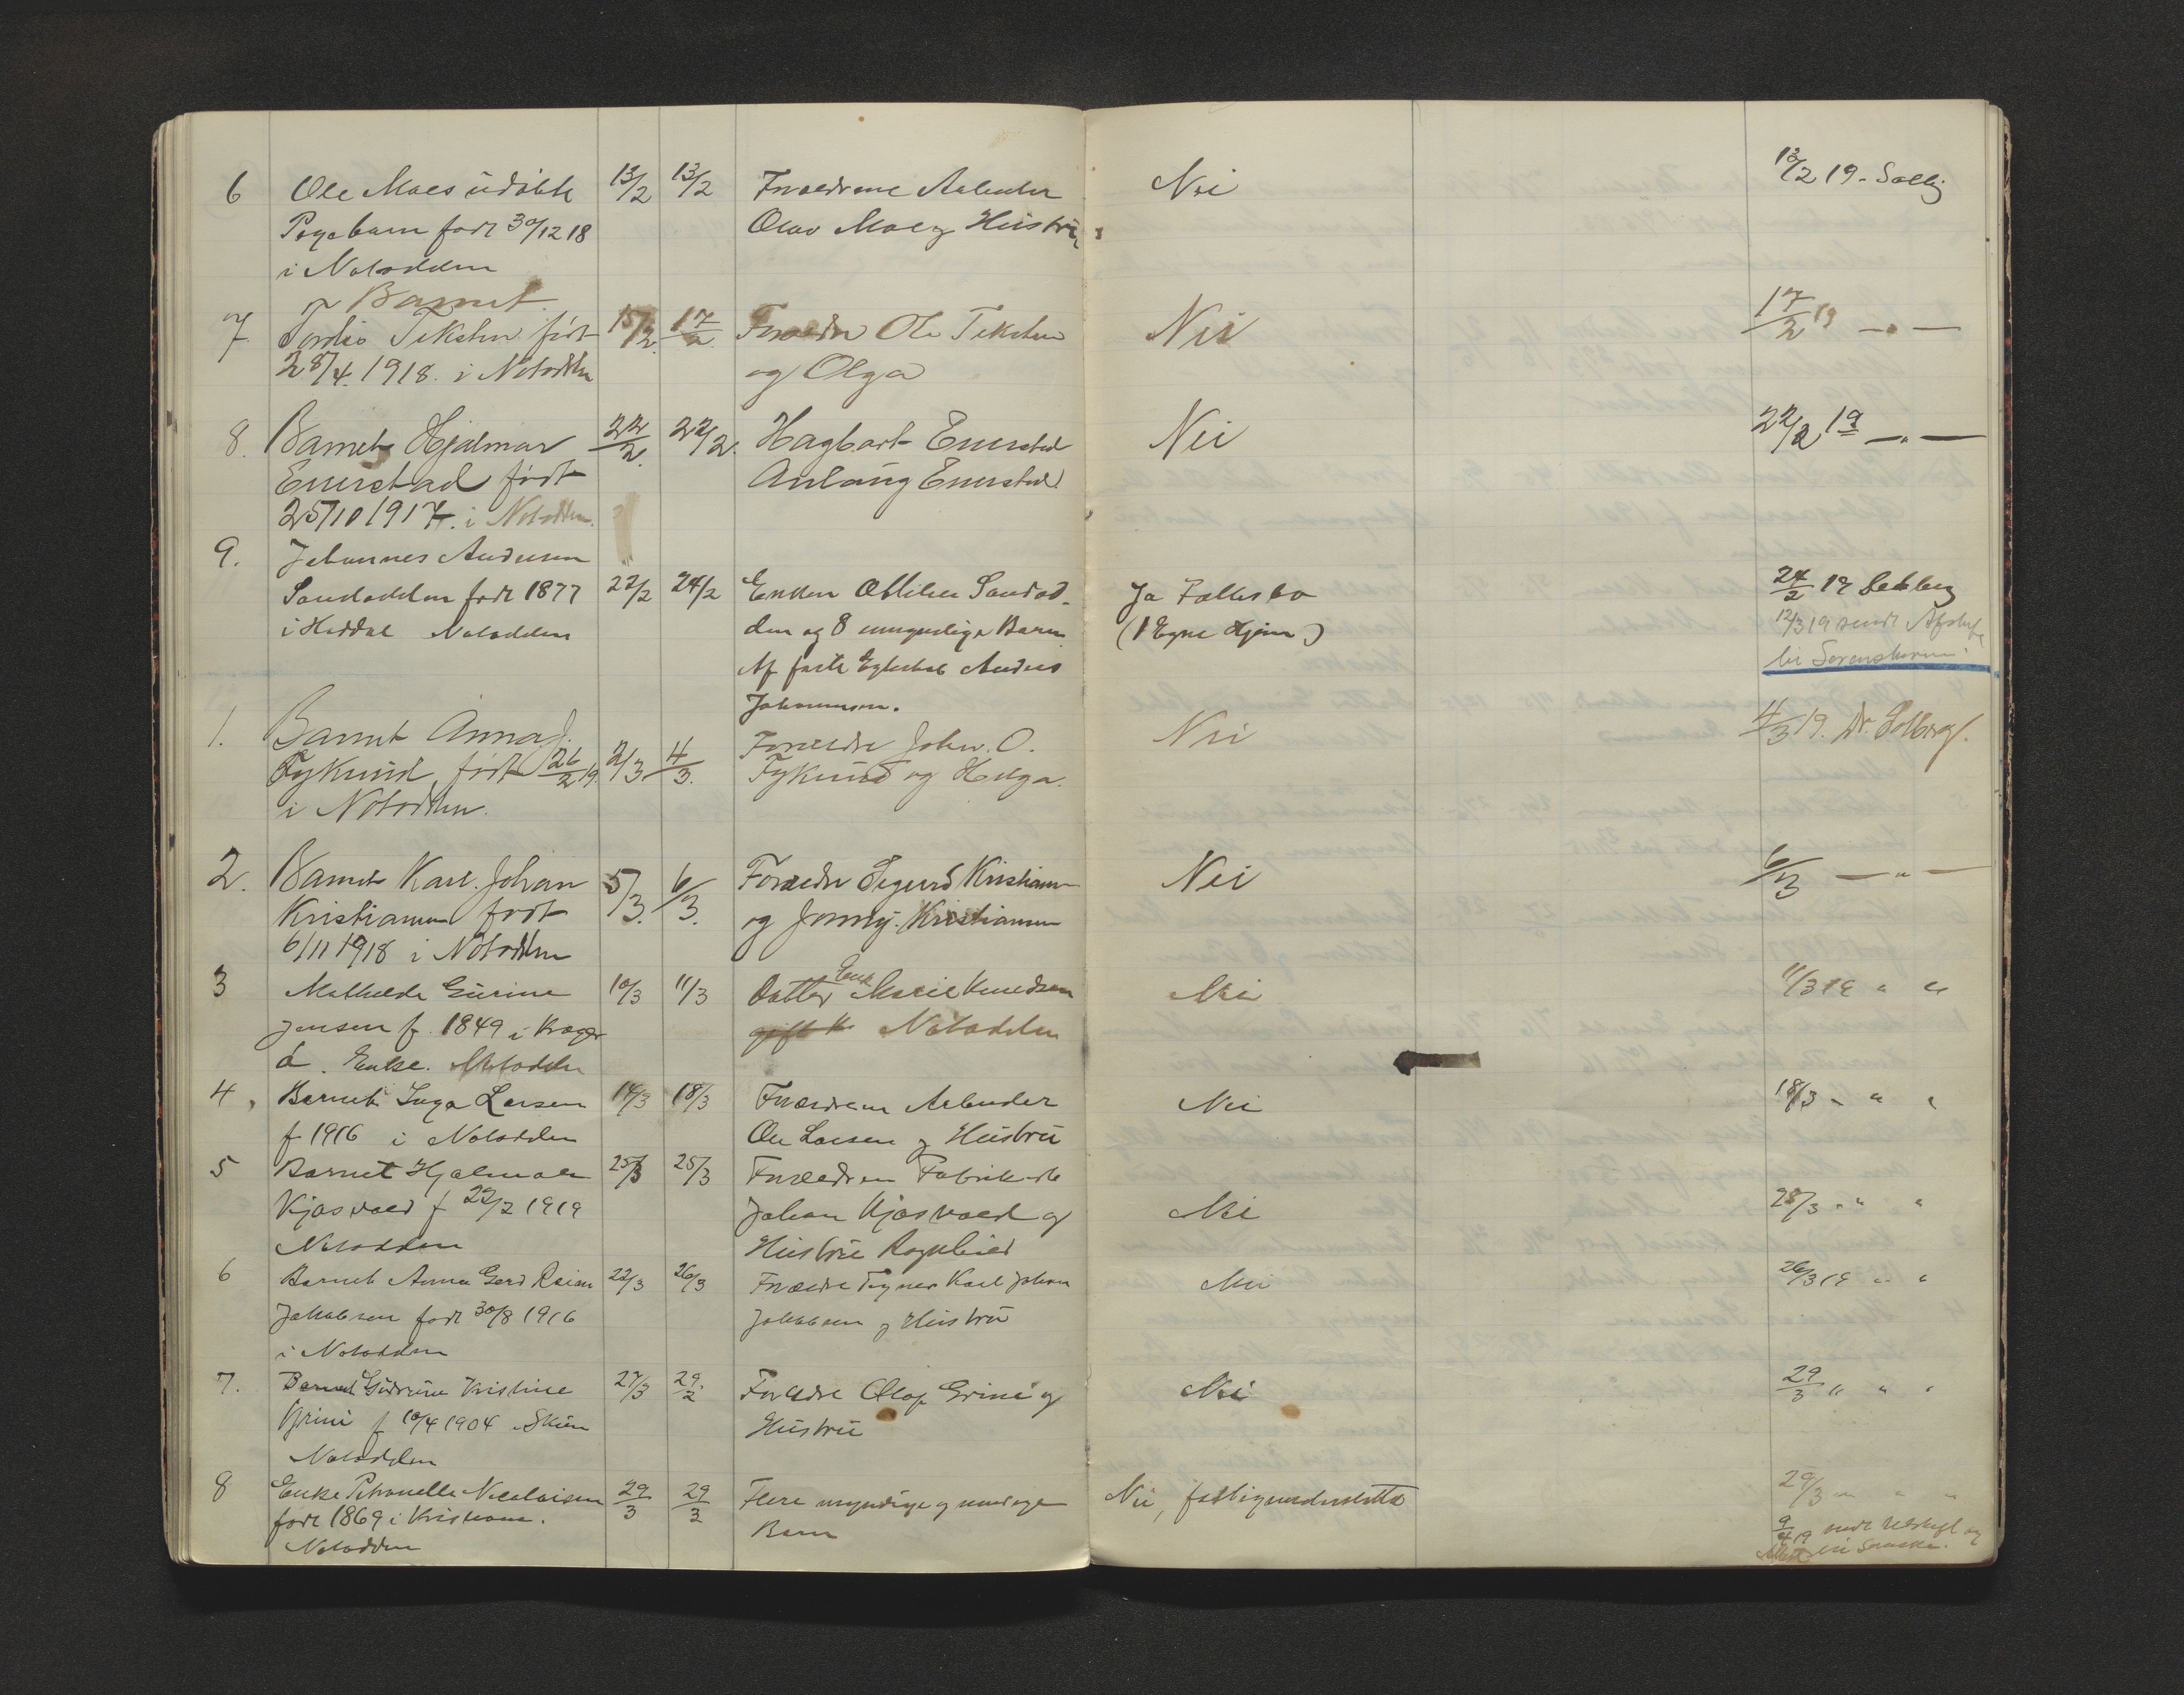 6 Ole Moes udöbte 13/2 13/2 Forældrene Arbeider Nei 13/2 19 - Solbg
Pigebarn født 30/12 18 Olav Moe og Hustru
i Notodden
Barnet
7 Tordis Tekslen født 15/2. 17/2 Forældre Ole Tekslen Nei 17/2 19 — " —
28/4. 1918. i Notodden og Olga
8. Barnet Hjalmar 22/2. 22/2. Hagbart Enerstad Nei 22/2 19 — " —
Enerstad født Aslaug Enerstad
25/10 1917. i Notodden.
9. Johannes Andersen
Sandodden født 1877 22/2 24/2 Enken Sandod- Ja Fælles bo 24/2 19 Solberg
i Heddal Notodden den og 8 umyndige Barn (I Egne Hjem) 12/3 19 sendt Afskrift
Af første Egteskab Anders til Sorenskriveren.
Johannesen.
1. Barnet Anna J. Forældre John. O. Nei 4/3 19. Dr. Solberg.
Fykerud født 26/2 19. 2/3 4/3. Fykerud og Helga.
i Notodden.
2. Barnet Karl. Johan 5/3. 6/3. Forældre Sigurd Kristiansen Nei 6/3 — " —
Kristiansen født og Jenny. Kristiansen
6/11 1918 i Notodden
3 Mathilde Gurine 10/3 11/3 Datter Enke Marie Knudsen Nei 11/3 19 " "
Jensen f. 1849 i Krager Notodden
ö. Enke. Notodden
4, Barnet Inga Larsen 14/3 18/3 Forældrene Arbeider Nei 18/3 - " "
f 1916 i Notodden Ole Larsen og Hustru
5 Barnet Hjalmar 25/3 25/3 Forældrene
Kjosvold f 22/2 1919 Johan Kjosvold og Nei 25/3 - " "
Notodden Hustru Ragnhild
6 Barnet Anna Gerd 22/3 26/3 Forældre Karl Johan Nei 26/3 19 " "
Jakobsen født 30/8 1916 Jakobsen og Hustru
i Notodden
7. Barnet Gudrun Kristine 27/3 29/3 Forældre Olaf Grini og Nei 29/3 " " "
Grini f 10/4 1904 Skien Hustru
Notodden
8 Enke Petronelle Nicolaisen 29/3 29/3 Flere myndige og umyndige Nei, fattigunderstøttet 29/3 " " "
født 1869 i Kristiania. Barn 9/4 19 sendt og
Notodden